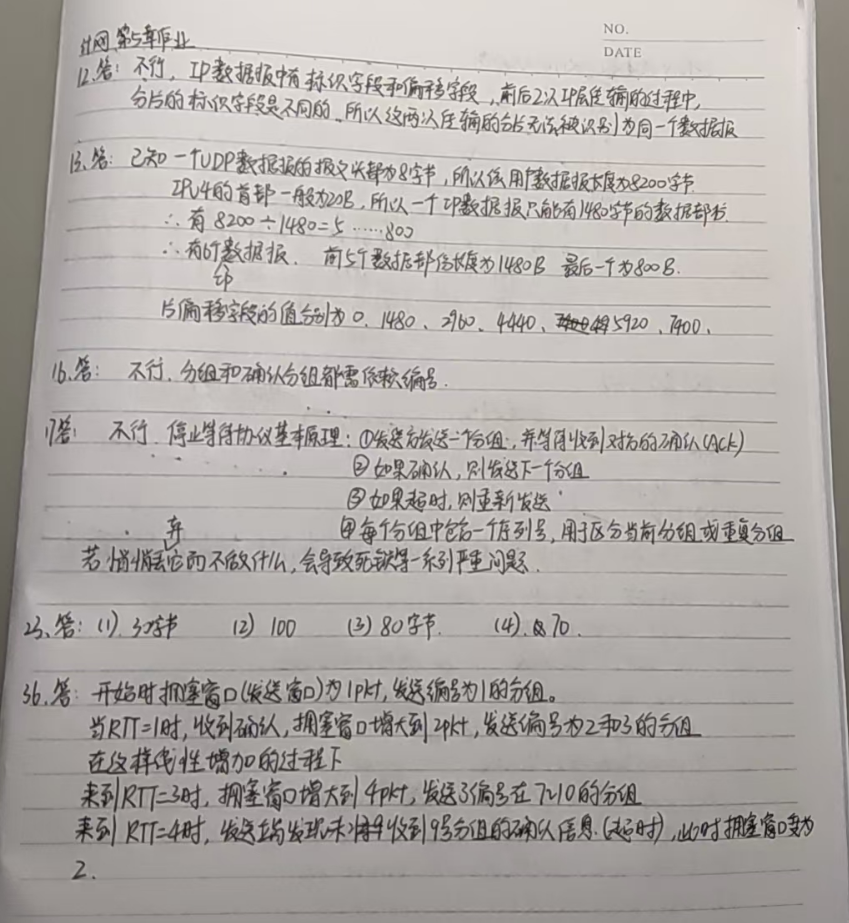 NO.
DATE
计网第5章作业
12.答: 不行, IP数据报中有标识字段和偏移字段, 前后2次IP层传输的过程中,
分片的标识字段是不同的, 所以这两次传输的分片无法被识别为同一个数据报
13.答: 已知一个UDP数据报的报文头部为8字节, 所以该用户数据报长度为8200字节
IPv4的首部一般为20B, 所以一个IP数据报只能有1480字节的数据部分
∴有 8200÷1480=5……800
∴有6个数据报. 前5个数据部份长度为1480B 最后一个为800B.
IP
片偏移字段的值分别为0、1480、2960、4440、5920、7400.
16.答: 不行. 分组和确认分组都需依赖编号.
17答: 不行. 停止等待协议基本原理: ①发送方发送一个分组, 并等待收到对方的确认(ACK)
②如果确认, 则发送下一个分组
③如果超时, 则重新发送
④每个分组中包含一个序列号, 用于区分当前分组或重复分组
弃
若悄悄丢它而不做什么, 会导致死锁等一系列严重问题.
23、答: (1). 30字节 (2) 100 (3) 80字节. (4). 70.
36.答: 开始时拥塞窗口(发送窗口)为1pkt, 发送编号为1的分组。
当RTT=1时, 收到确认, 拥塞窗口增大到2pkt, 发送编号为2和3的分组
在这样线性增加的过程下
来到RTT=3时, 拥塞窗口增大到4pkt, 发送了编号在7~10的分组
来到RTT=4时, 发送端发现未收到9号分组的确认信息.(超时), 此时拥塞窗口变为
2.